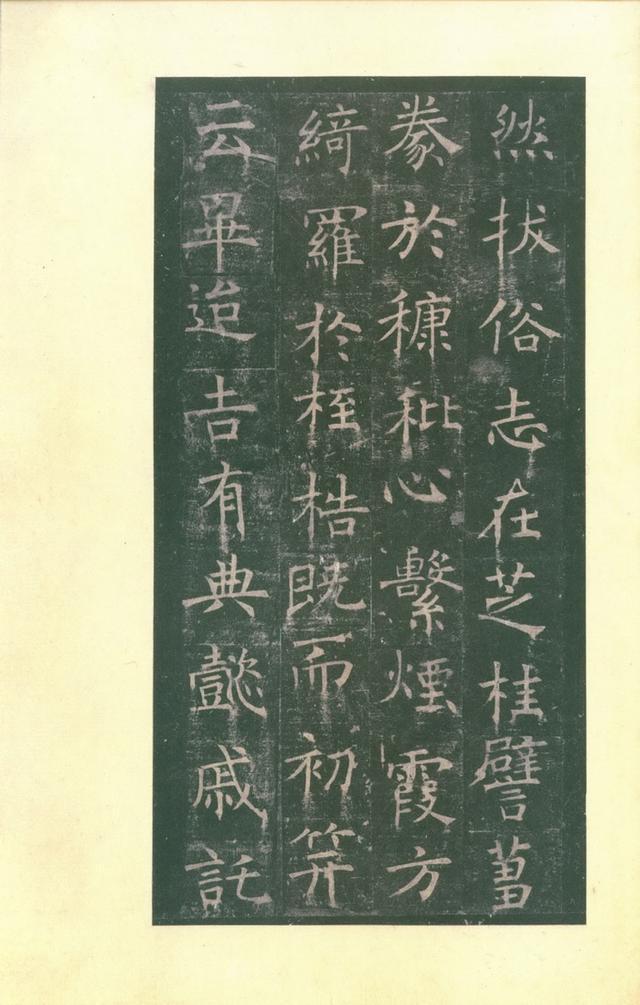 然拔俗志在芝桂譬芻
豢於穅秕心繫煙霞方
綺羅於桎梏既而初笄
云畢迨吉有典懿戚託